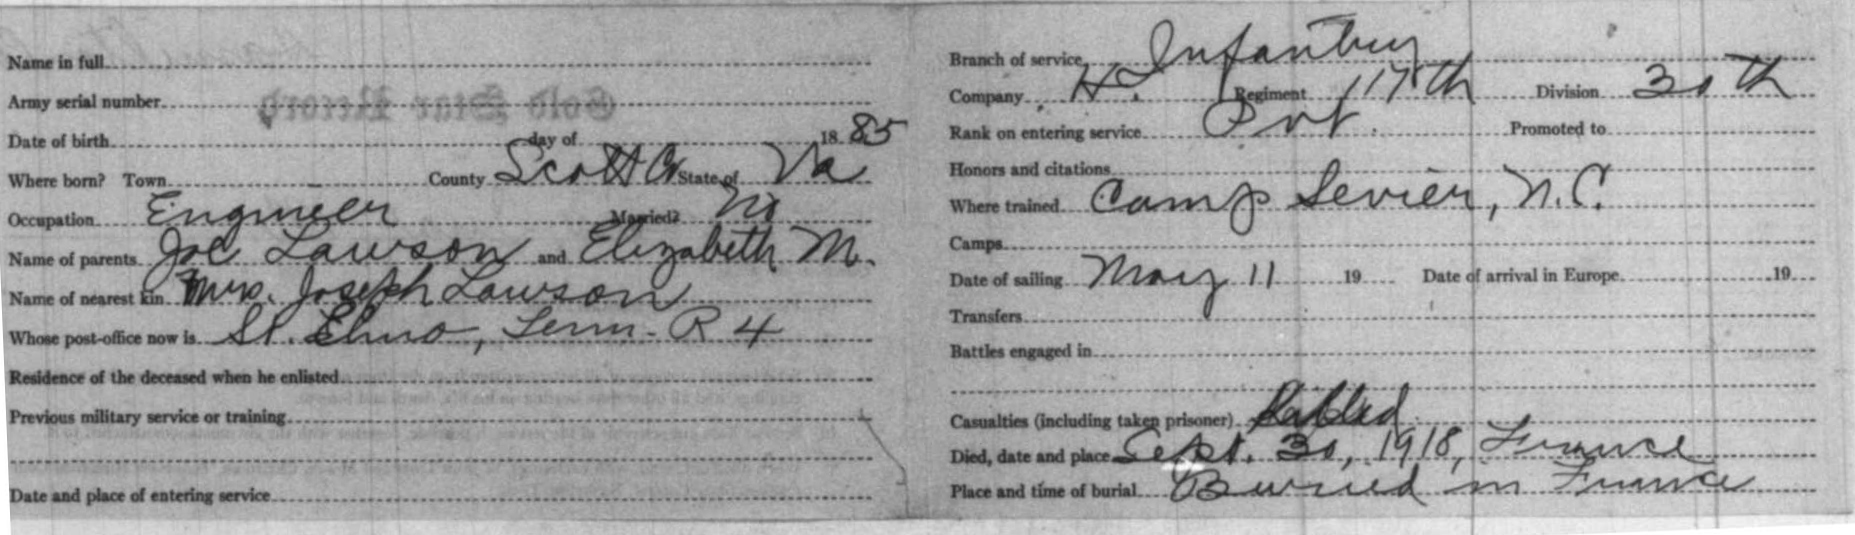 Name in full
Army serial number
Date of birth day of 18 85
Where born? Town County Scott Co State of Va
Occupation Engineer Married? No
Name of parents Joe Lawson and Elizabeth M.
Name of nearest kin Mrs. Joseph Lawson
Whose post-office now is St. Elmo, Tenn - R 4
Residence of the deceased when he enlisted
Previous military service or training
Date and place of entering service
Branch of service Infantry
Company H. Regiment 117th Division 30th
Rank on entering service Pvt. Promoted to
Honors and citations
Where trained Camp Sevier, N.C.
Camps
Date of sailing May 11 19 Date of arrival in Europe 19
Transfers
Battles engaged in
Casualties (including taken prisoner) Killed
Died, date and place Sept. 30, 1918, France
Place and time of burial Buried in France